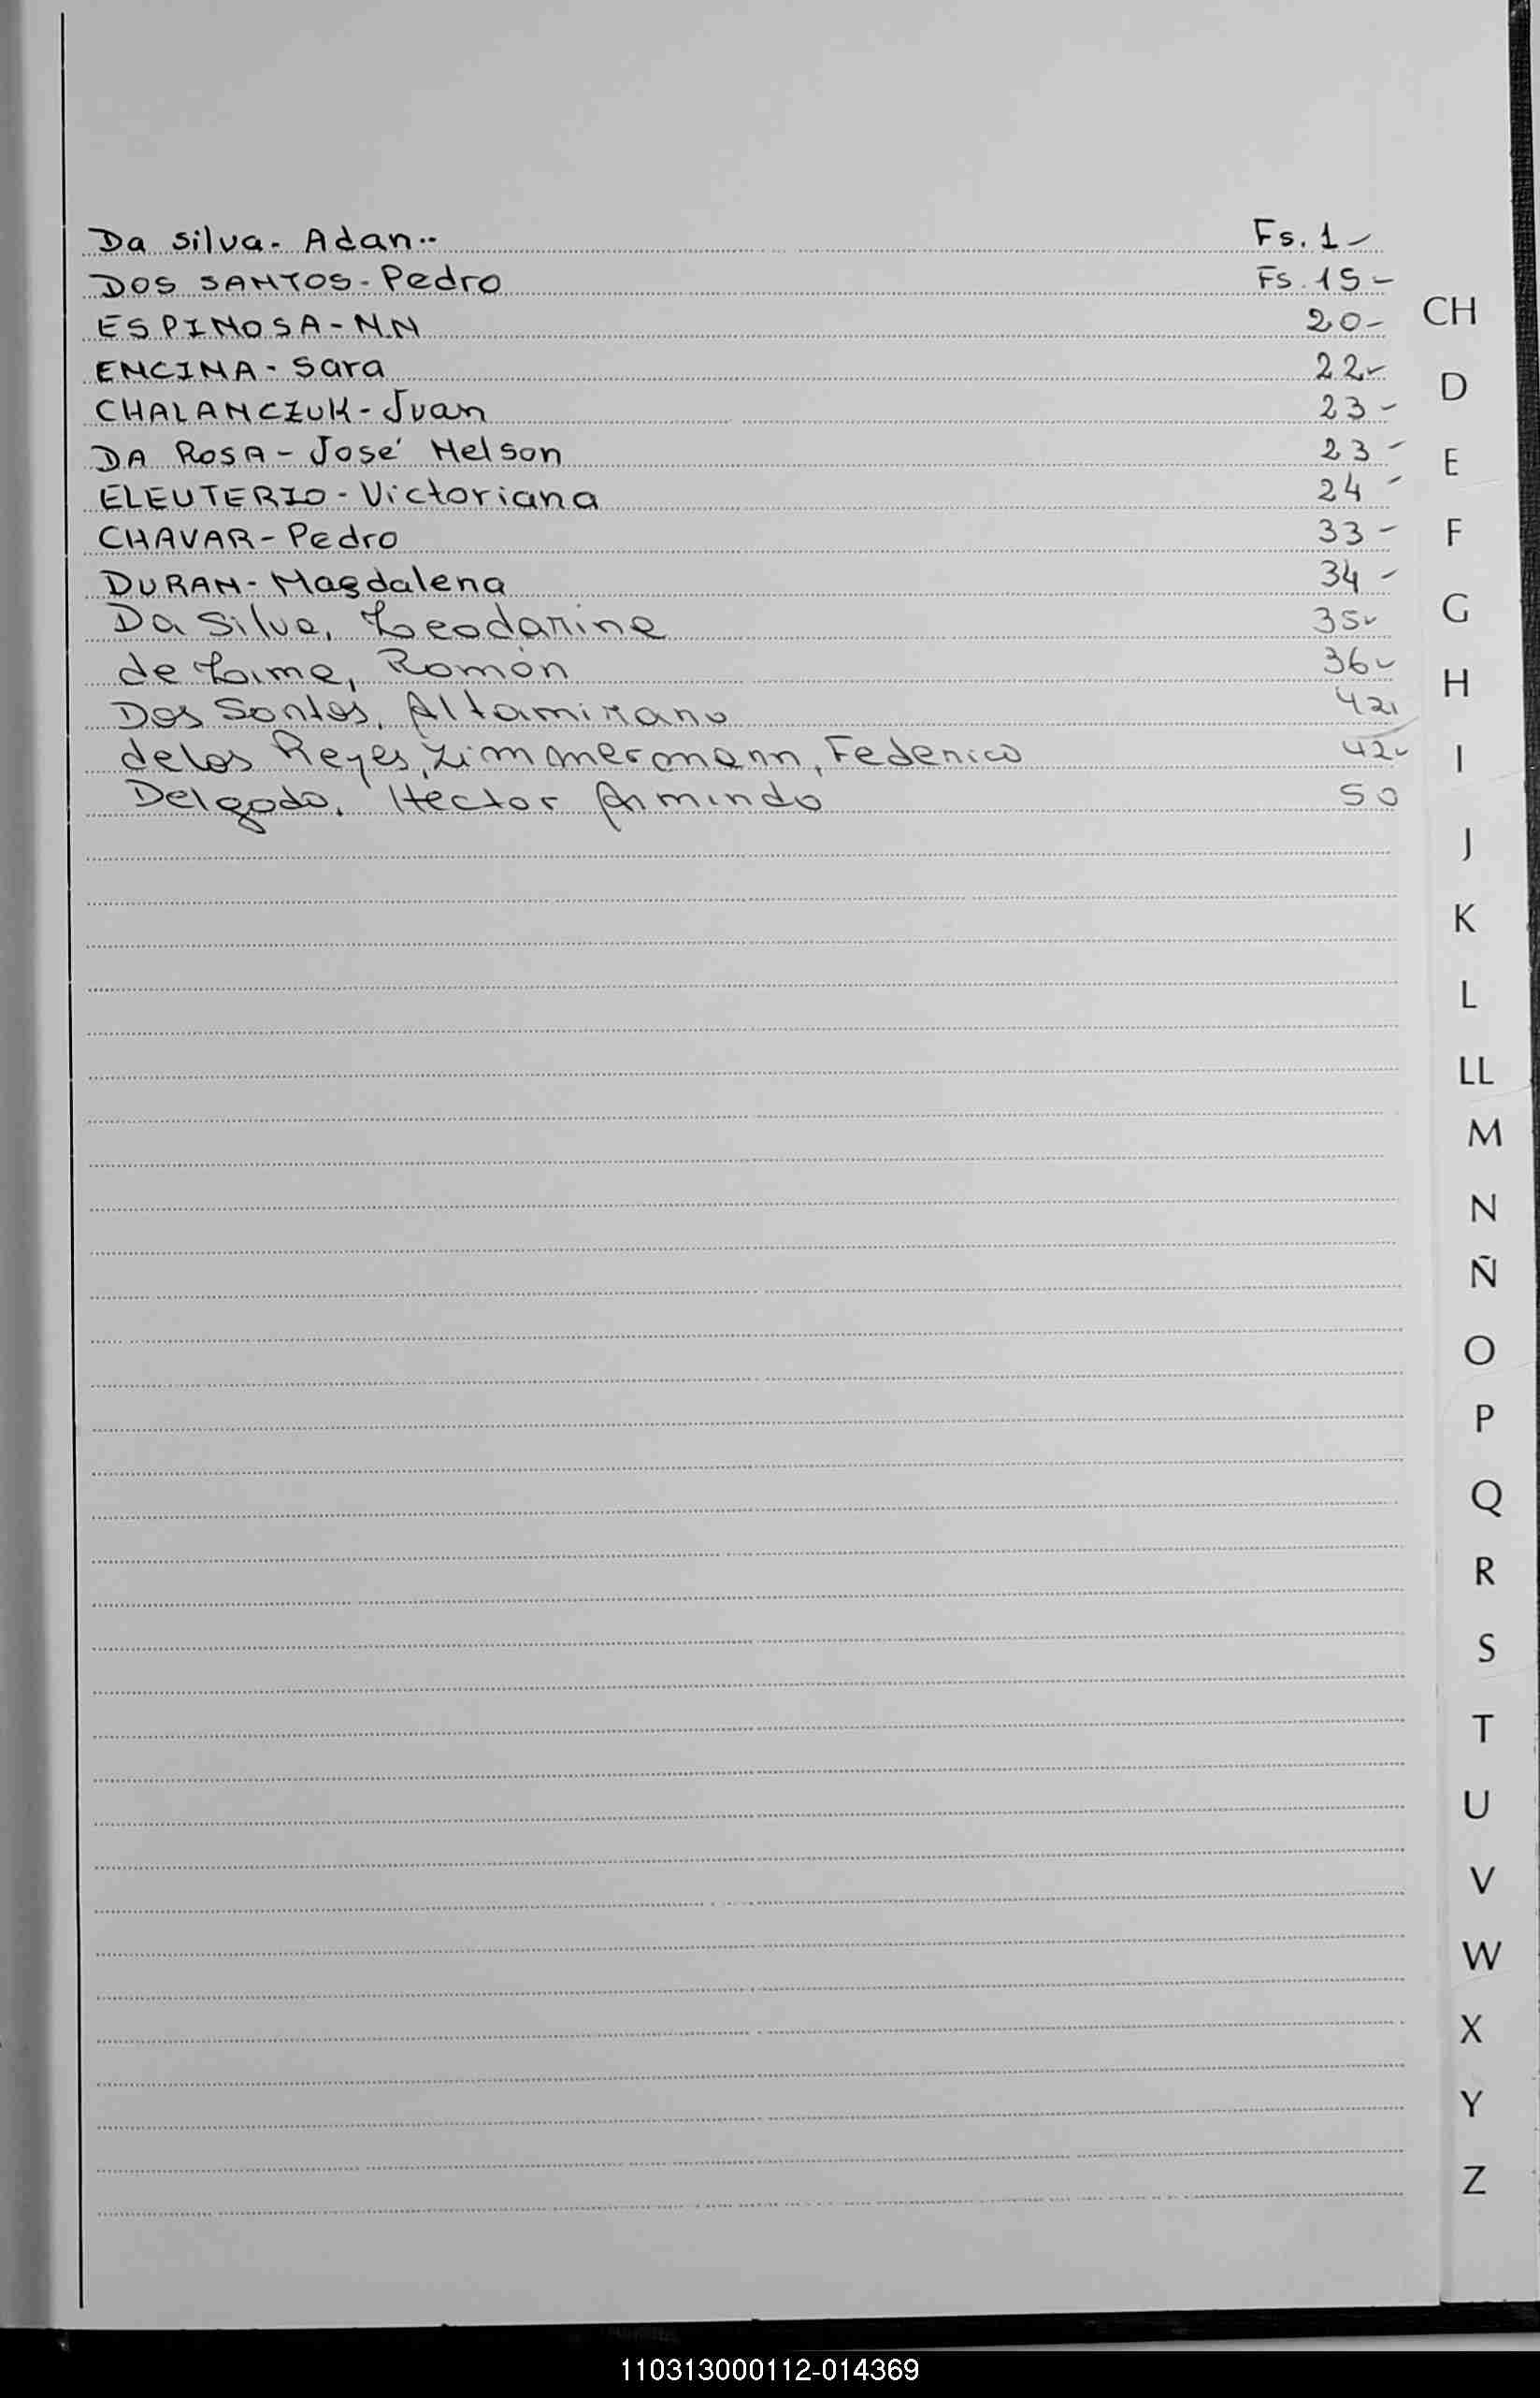 Da Silva. Adan.. Fs. 1-
DOS SANTOS - Pedro Fs. 15-
ESPINOSA - N.N 20-
ENCINA - Sara 22-
CHALANCZUK - Juan 23-
DA ROSA - José Nelson 23-
ELEUTERIO - Victoriana 24-
CHAVAR - Pedro 33-
DURAN - Magdalena 34-
Da Silva, Leodarina 35-
de Lima, Román 36-
Dos Santos, Altamirano 42,
de los Reyes, Zimmermann, Federico 42-
Delgado, Hector Armindo 50
CH
D
E
F
G
H
I
J
K
L
LL
M
N
Ñ
O
P
Q
R
S
T
U
V
W
X
Y
Z
110313000112-014369